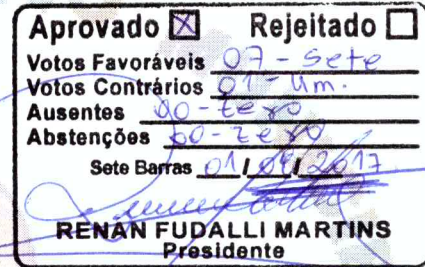 Aprovado ☒ Rejeitado ☐
Votos Favoráveis 07 - Sete
Votos Contrários 01 - Um.
Ausentes 00 - zero
Abstenções 00 - zero
Sete Barras 01 / / 2017
RENAN FUDALLI MARTINS
Presidente